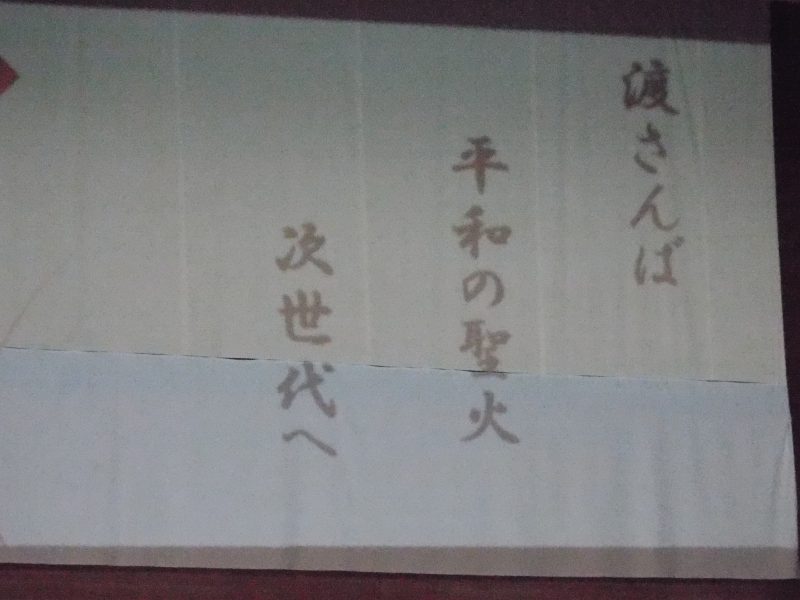 渡さんば
平和の聖火
次世代へ